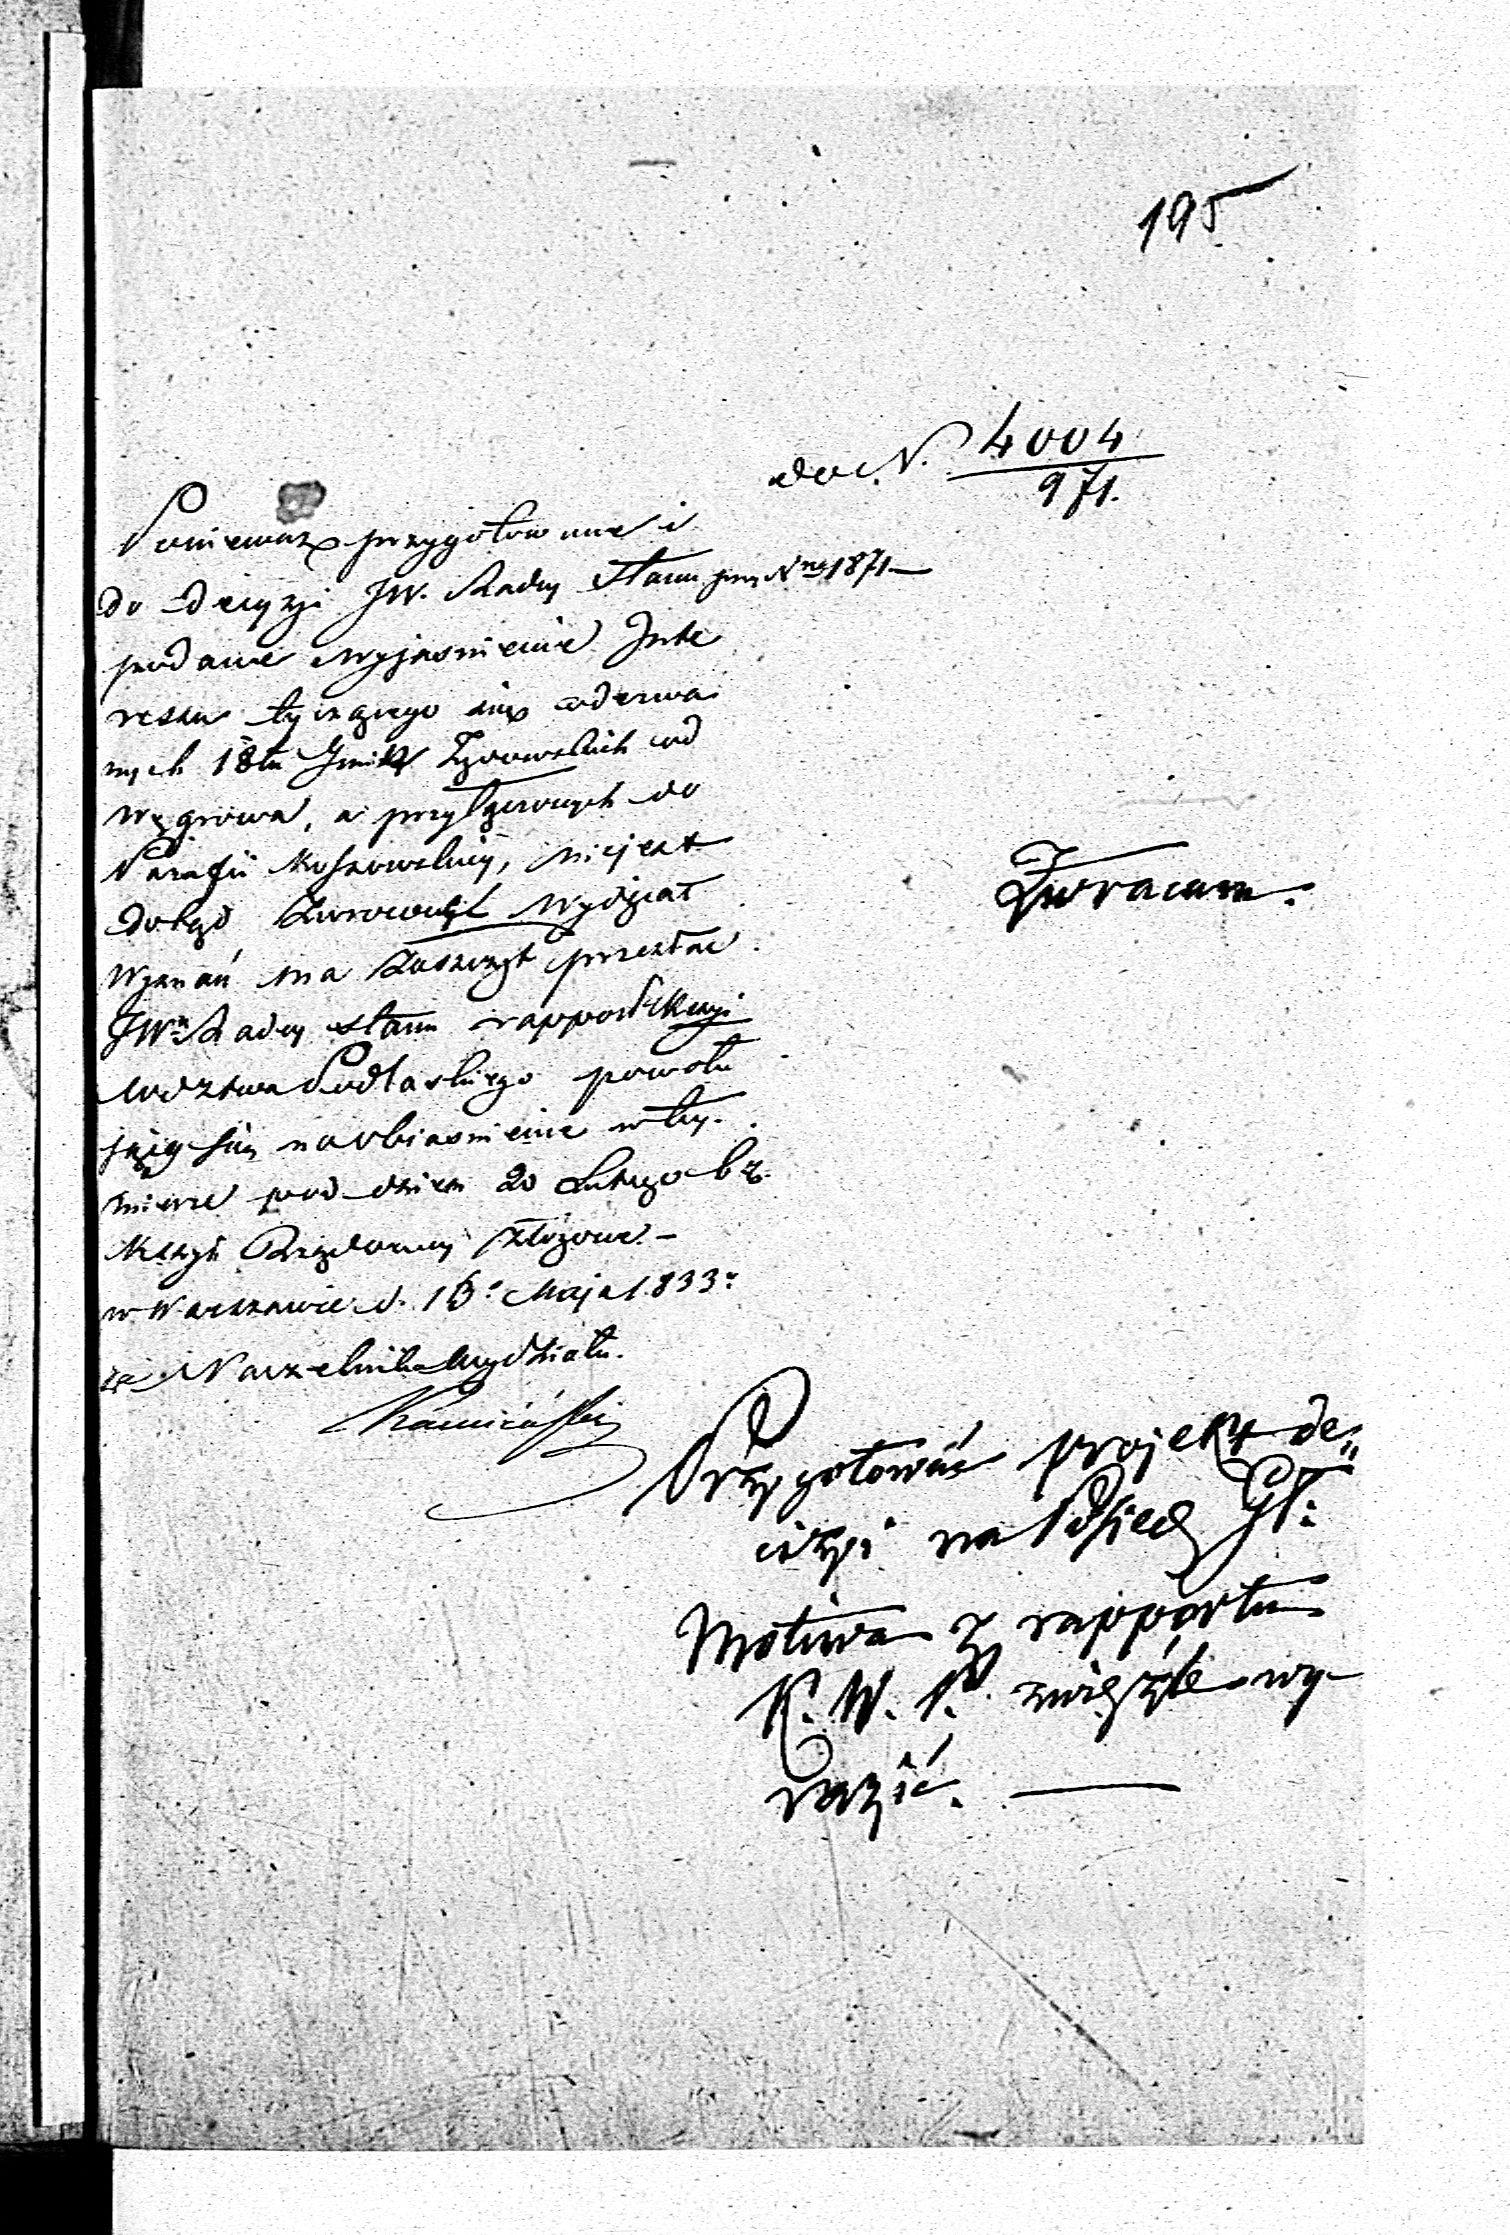 195
do N. 4004
971.
Ponieważ przygotowane i
do decyzji JW. Radcy Stanu przy Nrze 1871 —
podane wyjaśnienie Inte
ressu tyczącego się oderwa
nych 18tu Gmin Żydowskich od
Węgrowa, a przyłączonych do
Parafii Kossowskiey, niejest
dotąd zwrócone Wydział
Wyznań ma zaszczyt przesłać
JWu Radcy stanu rapport Kmyi
Wodztwa Podlaskiego powołu
jący się na obiasnienie w tey
mierze pod dniem 20 Lutego b r.
Kmyi Rządowey złożone. —
w Warszawie d. 15. Maja 1833 r
za Naczelnika Wydziału.
Kamiński
Zwracam.
Przygotować projekt de„
cizyi na Posiedz Gł:
Motiwa z rapportu
K. W. P. zwięźle wy-
razić. —